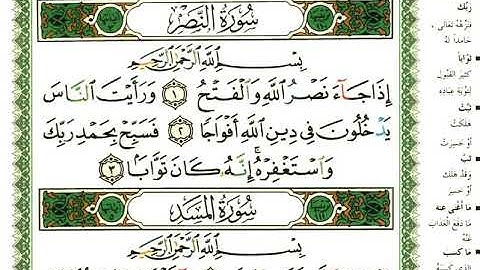 سُورَةُ النَّصْرِ
بِسْمِ ٱللَّهِ ٱلرَّحْمَٰنِ ٱلرَّحِيمِ
إِذَا جَآءَ نَصْرُ ٱللَّهِ وَٱلْفَتْحُ ١ وَرَأَيْتَ ٱلنَّاسَ
يَدْخُلُونَ فِي دِينِ ٱللَّهِ أَفْوَاجًا ٢ فَسَبِّحْ بِحَمْدِ رَبِّكَ
وَٱسْتَغْفِرْهُ ۚ إِنَّهُۥ كَانَ تَوَّابًۢا ٣
سُورَةُ المَسَدِ
بِسْمِ ٱللَّهِ ٱلرَّحْمَٰنِ ٱلرَّحِيمِ
رَبِّكَ
فنزّهه تعالى ،
حامداً له
تَوَّاباً
كثير القبول
لتوبة عباده
تَبَّتْ
هلكت
أو خسرت
تَبَّ
وقد هلك
أو خسر
مَا أَغْنَى عنه
ما دفع العذاب
عنه
مَا كَسَبَ
الذي كسبه